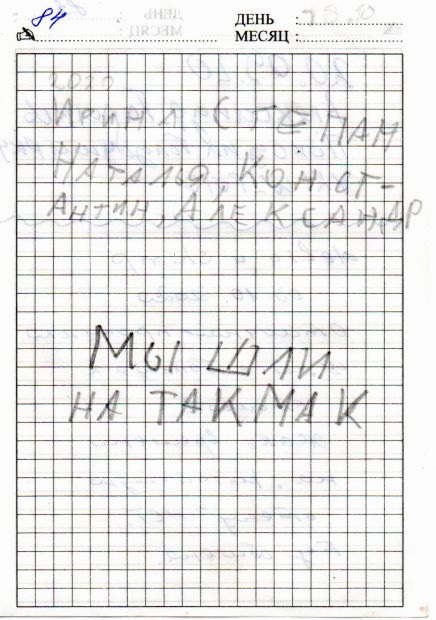 84
ДЕНЬ : 18.10
МЕСЯЦ :
2020
Ирина СТЕПАН
НАТАЛЬЯ, КОНСТ-
АНТИН, АЛЕКСАНДР
МЫ ШЛИ
НА ТАКМАК